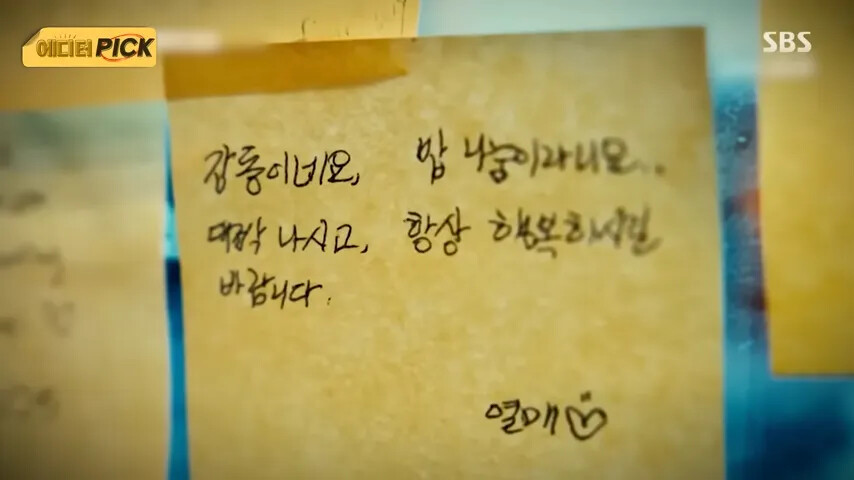 에디터PICK
SBS
감동이네요, 밥 나눔이라니요...
대박 나시고, 항상 행복하시길
바랍니다.
열매